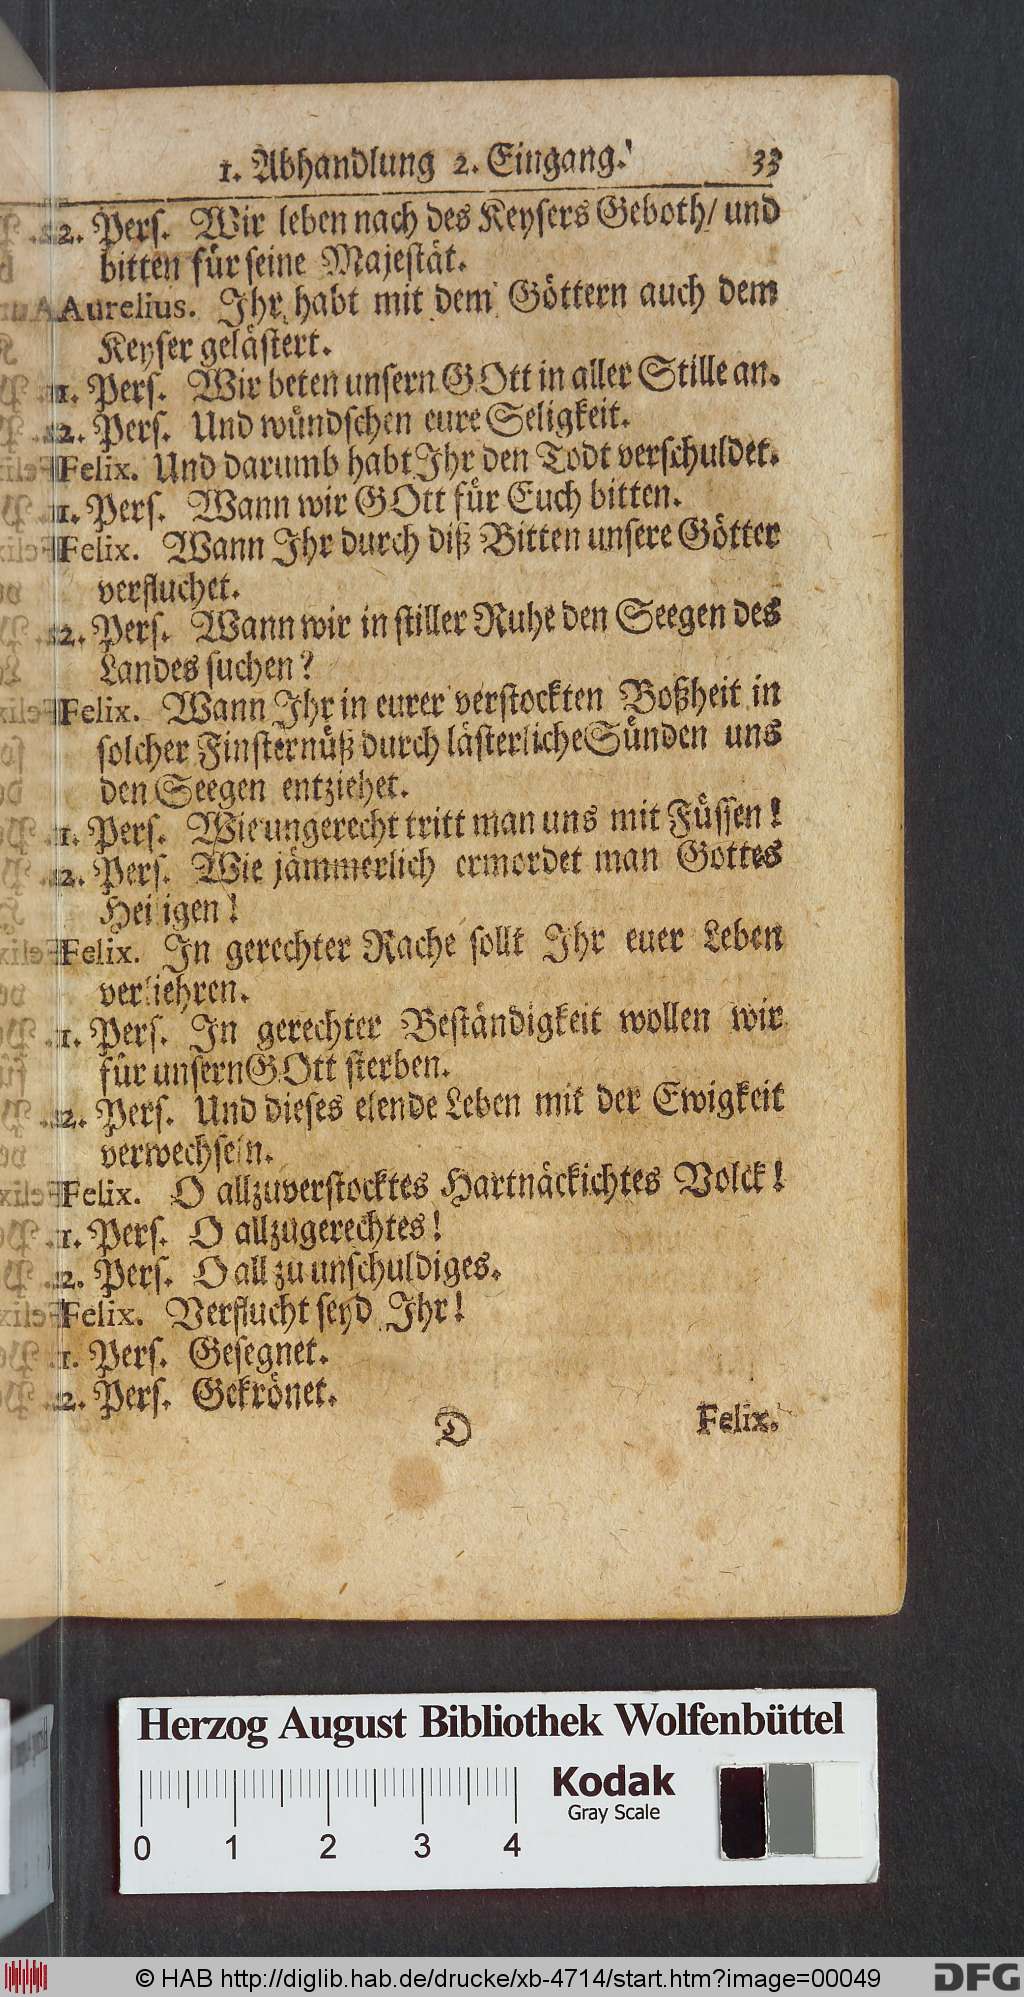 1. Abhandlung 2. Eingang. 33
2. Pers. Wir leben nach des Keysers Geboth/ und
bitten für seine Majestät.
Aurelius. Ihr habt mit dem Göttern auch dem
Keyser gelästert.
1. Pers. Wir beten unsern GOtt in aller Stille an.
2. Pers. Und wündschen eure Seligkeit.
Felix. Und darumb habt Ihr den Todt verschuldet.
1. Pers. Wann wir GOtt für Euch bitten.
Felix. Wann Ihr durch diß Bitten unsere Götter
verfluchet.
2. Pers. Wann wir in stiller Ruhe den Seegen des
Landes suchen?
Felix. Wann Ihr in eurer verstockten Boßheit in
solcher Finsternüß durch lästerliche Sünden uns
den Seegen entziehet.
1. Pers. Wie ungerecht tritt man uns mit Füssen!
2. Pers. Wie jämmerlich ermordet man Gottes
Heiligen!
Felix. In gerechter Rache sollt Ihr euer Leben
verliehren.
1. Pers. In gerechter Beständigkeit wollen wir
für unsern GOtt sterben.
2. Pers. Und dieses elende Leben mit der Ewigkeit
verwechseln.
Felix. O allzuverstocktes Hartnäckichtes Volck!
1. Pers. O allzugerechtes!
2. Pers. O all zu unschuldiges.
Felix. Verflucht seyd Ihr!
1. Pers. Gesegnet.
2. Pers. Gekrönet.
D Felix.
Herzog August Bibliothek Wolfenbüttel
Kodak
Gray Scale
0 1 2 3 4
© HAB http://diglib.hab.de/drucke/xb-4714/start.htm?image=00049
DFG